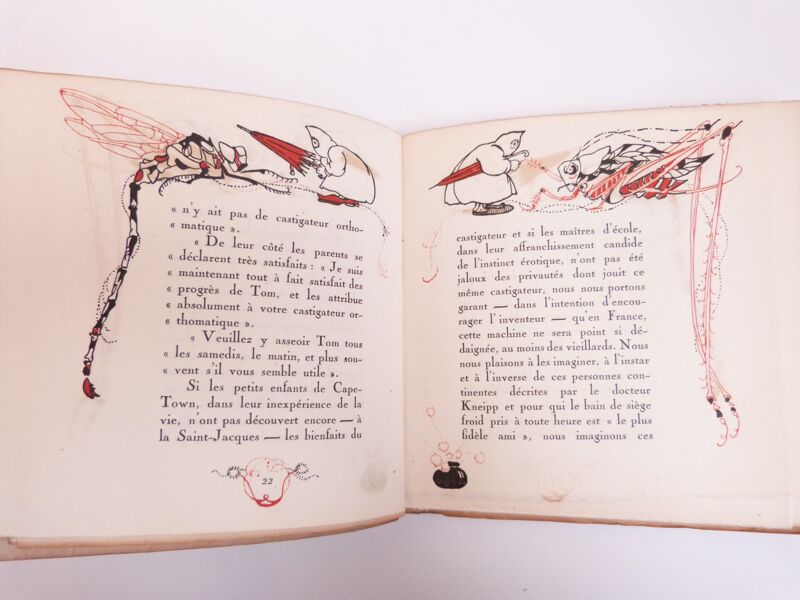 « n'y ait pas de castigateur ortho-
« matique ».
« De leur côté les parents se
« déclarent très satisfaits : « Je suis
« maintenant tout à fait satisfait des
« progrès de Tom, et les attribue
« absolument à votre castigateur or-
« thomatique ».
« Veuillez y asseoir Tom tous
« les samedis, le matin, et plus sou-
« vent s'il vous semble utile ».
Si les petits enfants de Cape-
Town, dans leur inexpérience de la
vie, n'ont pas découvert encore — à
la Saint-Jacques — les bienfaits du
22
castigateur et si les maîtres d'école,
dans leur affranchissement candide
de l'instinct érotique, n'ont pas été
jaloux des privautés dont jouit ce
même castigateur, nous nous portons
garant — dans l'intention d'encou-
rager l'inventeur — qu'en France,
cette machine ne sera point si dé-
daignée, au moins des vieillards. Nous
nous plaisons à les imaginer, à l'instar
et à l'inverse de ces personnes con-
tinentes décrites par le docteur
Kneipp et pour qui le bain de siège
froid pris à toute heure est « le plus
fidèle ami », nous imaginons ces